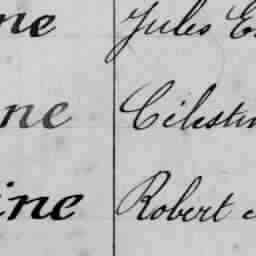 ne Jules E
ne Célestin
ine Robert